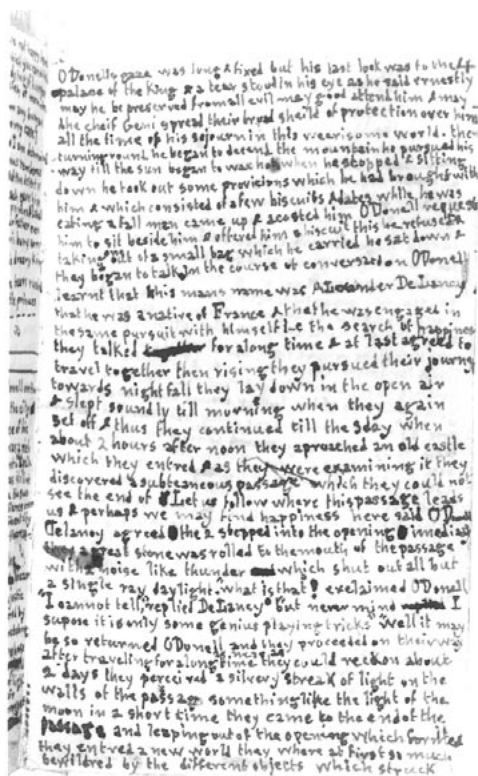 ODonells gaze was long & fixed but his last look was to the
palace of the King & a tear stood in his eye as he said ernestly
may he be preserved from all evil may good attend him & may
the cheif Geni spread their broad sheild of protection over him
all the time of his sojourn in this wearisome world. then
turning round he began to decend the mountain he pursued his
way till the sun began to wax hot when he stopped & sitting
down he took out some provisions which he had brought with
him & which consisted of a few biscuits & dates while he was
eating a tall man came up & acosted him ODonell requested
him to sit beside him & offered him a biscuit this he refused &
taking out of a small bag which he carried he sat down &
they began to talk In the course of conversation ODonell
learnt that this mans name was Alexander De Lancy
that he was a native of France & that he was engaged in
the same pursuit with himself i.e the search of happiness
they talked for a long time & at last agreed to
travel together then rising they pursued their journey
towards nightfall they lay down in the open air
& slept soundly till morning when they again
set off & thus they continued till the 3 day when
about 2 hours after noon they aproached an old castle
which they entred & as they were examining it they
discovered a subteaneous passage which they could not
see the end of Let us follow where this passage leads
us & perhaps we may find happiness here said ODonell
Delancy agreed the 2 stepped into the opening imediatly
a great stone was rolled to the mouth of the passage
with a noise like thunder which shut out all but
a single ray daylight. "what is that! exclaimed ODonell
"I cannot tell, replied De Lancy" but never mind I
supose it is only some genius playing tricks" well it may
be so returned ODonell and they proceeded on their way
after traveling for a long time as near as they could reckon about
2 days they perceived a silvery streak of light on the
walls of the passage something like the light of the
moon in a short time they came to the end of the
passage and leaping out of the opening which formed
they entred a new world they where at first so much
bewildred by the different objects which struck